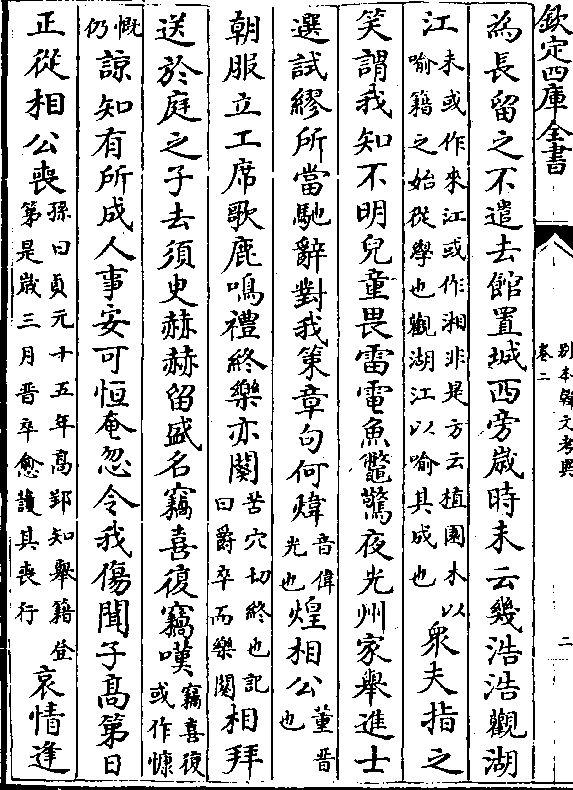 欽定四庫全書
別本韓文考異
卷二
二
為長留之不遣去館置城西旁歲時未云幾浩浩觀湖
江未或作來江或作湘非是方云植園木以喻籍之始從學也觀湖江以喻其成也衆夫指之
笑謂我知不明兒童畏雷電魚鼈驚夜光州家舉進士
選試繆所當馳辭對我策章句何煒音偉光也煌相公董晉也
朝服立工席歌鹿鳴禮終樂亦闋苦穴切終也記曰爵卒而樂闋相拜
送於庭之子去須臾赫赫留盛名竊喜復竊嘆竊喜復或作慷
慨仍諒知有所成人事安可恒奄忽令我傷聞子高第日
正從相公喪孫曰貞元十五年高郢知舉籍登第是歲三月晉卒愈護其喪行哀情逢